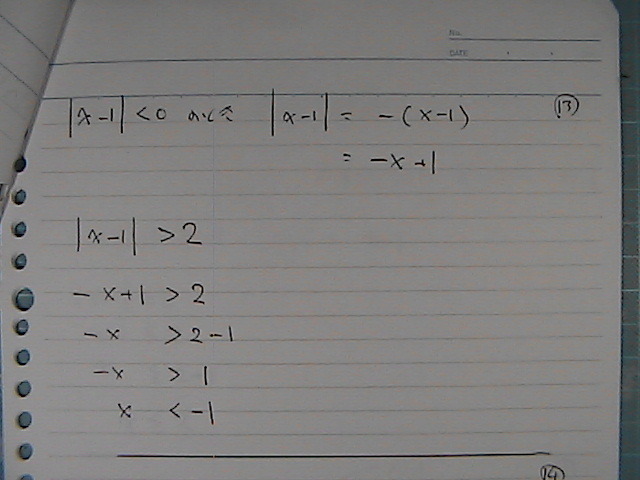 No.
DATE
|x-1| < 0 のとき |x-1| = -(x-1) ⑬
= -x+1
|x-1| > 2
-x+1 > 2
-x > 2-1
-x > 1
x < -1
⑭